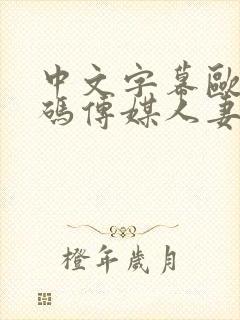 中文字幕歐
碼傳媒人妻
橙年歲月